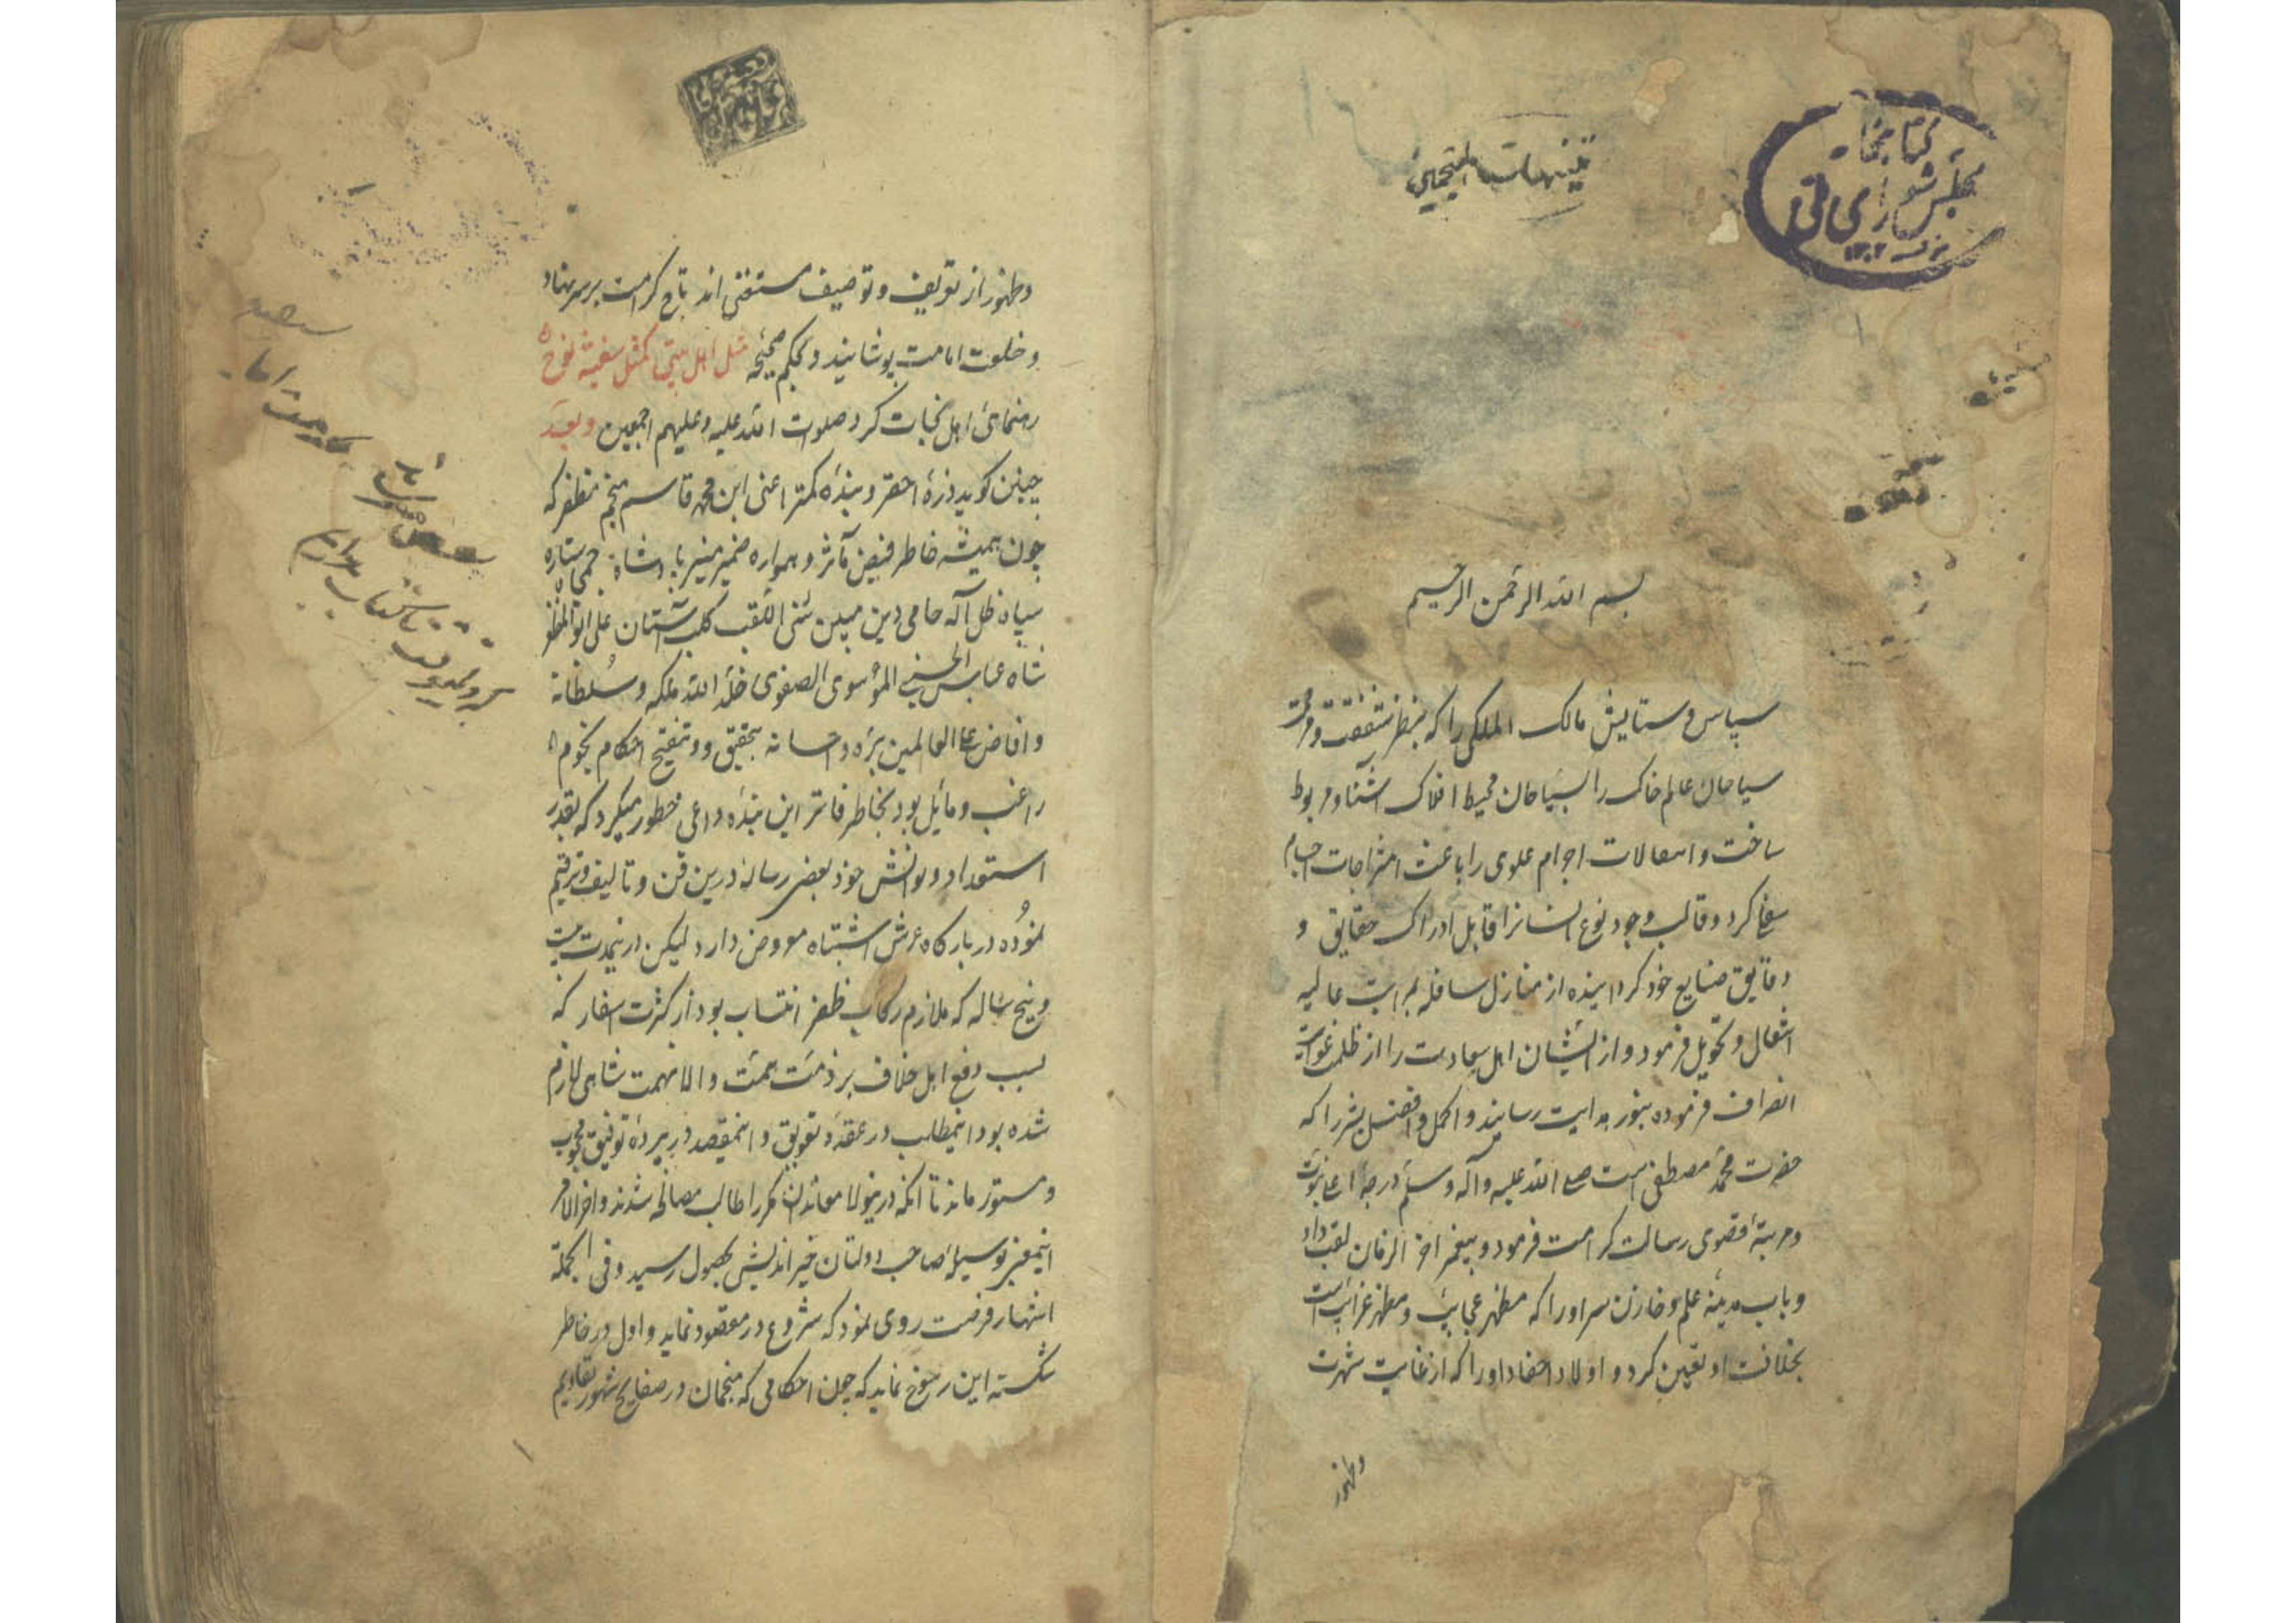 کتابخانه
مجلس شورای ملی
تنبیهات المنجمین
بسم الله الرحمن الرحیم
سپاس و ستایش مالک الملکی را که بنظر شفقت و مرحمت
سیاحان عالم خاک را بسیاحان محیط افلاک آشنا و مربوط
ساخت و اتصالات اجرام علوی را باعث امتزاجات اجسام
سفلی کرد و قالب وجود نوع انسانرا قابل ادراک حقایق و
دقایق صنایع خود کردانیده از منازل سافله بمراتب عالیه
انتقال و تحویل فرمود و از ایشان اهل سعادت را از ظلمت غوایت
انصراف فرموده بنور هدایت رسانید و اکمل و افضل بشر را که
حضرت محمد مصطفی است صلی الله علیه و آله وسلم درجهٔ اعلی نبوت
و مرتبهٔ قصوی رسالت کرامت فرمود و پیغمبر اخر الزمان لقب داد
و باب مدینهٔ علم و خازن سر او را که مظهر عجایب و مظهر غرایب است
بخلافت او تعیین کرد و اولاد احفاد او را که از غایت شهرت
وظهور
وظهور از تعریف و توصیف مستغنی اند تاج کرامت بر سر نهاد
و خلعت امامت پوشانید و بحکم صحیحه مثل اهل بیتی کمثل سفینة نوح
رهنمای اهل نجات کرد صلوت الله علیه و علیهم اجمعین و بعد
چنین کوید ذرهٔ احقر و بندهٔ کمتر اعنی ابن محمد قاسم منجم مظفر که
چون همیشه خاطر فیض مآثر و همواره ضمیر منیر پادشاه جمجاه ستاره
سپاه ظل آله حامی دین مبین سنی اللقب کلب آستان علی ابو المظفر
شاه عباس الحسینی الموسوی الصفوی خلد الله ملکه و سلطانه
و افاض علی العالمین بره و احسانه بتحقیق و تنقیح احکام نجوم
راغب و مایل بود بخاطر فاتر این بنده داعی خطور میکرد که بقدر
استعداد و دانش خود بعضی رساله درین فن و تالیف و ترقیم
نموده در بارکاه عرش اشتباه معروض دارد لیکن درینمدت بیست
و پنج ساله که ملازم رکاب ظفر انتساب بود از کثرت اسفار که
بسبب دفع اهل خلاف بر ذمت همت والا نهمت شاهی لازم
شده بود اینمطلب در عقدهٔ تعویق و اینمقصد در پردهٔ توفیق محجوب
و مستور ماند تا انکه درینولا معاندان مکرر طالب مصالحه شدند و اخر الامر
اینمعنی بوسیلهٔ صاحب دولتان خیر اندیش بحصول رسید و فی الجمله
انتهاز فرصت روی نمود که شروع در مقصود نماید و اول در خاطر
شکسته این رسوخ نماید که چون احکامی که منجمان در صفایح شهور تقاویم